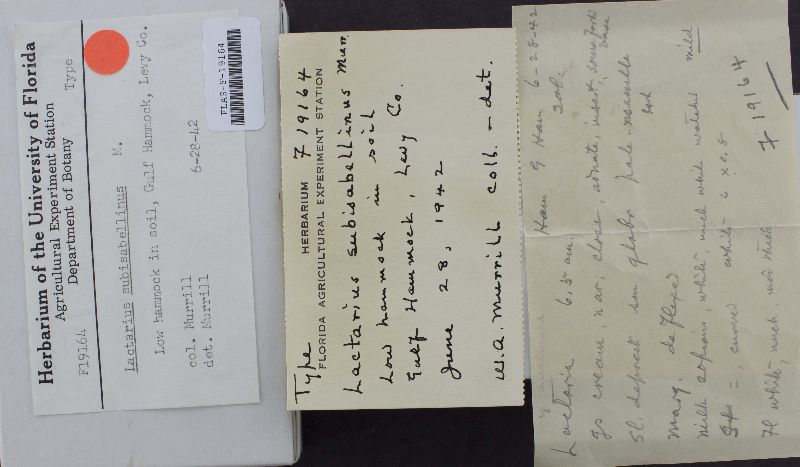 Herbarium of the University of Florida
Agricultural Experiment Station
Department of Botany
F19164 Type
Lactarius subisabellinus M.
Low hammock in soil, Gulf Hammock, Levy Co.
col. Murrill 6-28-42
det. Murrill
FLAS-F-19164
Type HERBARIUM F 19164
FLORIDA AGRICULTURAL EXPERIMENT STATION
Lactarius subisabellinus Murr.
Low hammock in soil
Gulf Hammock, Levy Co.
June 28, 1942
W.A. Murrill coll. - det.
Lactaria Ham G Ham 6-28-42
6.5 cm. sol.
gs cream, nar, close, adnate, insert, some fork
base
sl. deprest um glabr pale
marg. deflexed
milk copious, white, much white watched mild
curved white 6 x 0.8
Fl white, much
F 19164